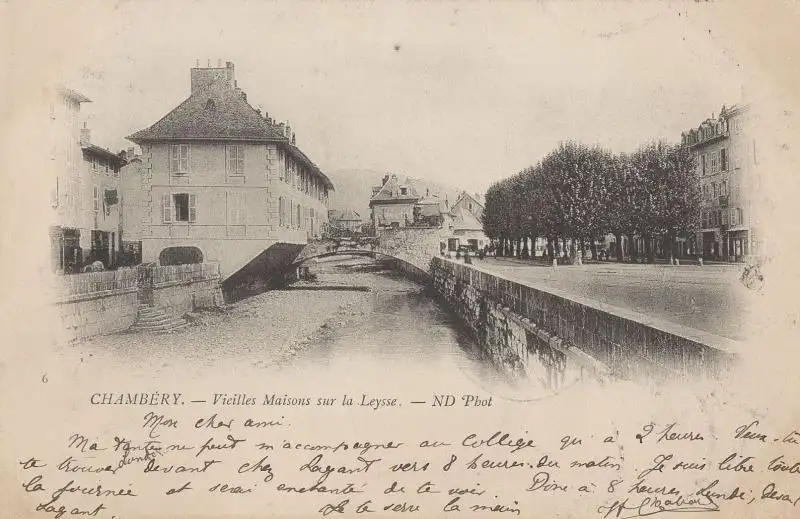 6
CHAMBÉRY. — Vieilles Maisons sur la Leysse. — ND Phot
Mon cher ami.
Ma tante ne peut m'accompagner au Collège qu'à 2 heures. Veux-tu
lundi
te trouver devant chez Lagant vers 8 heures du matin. Je suis libre toute
la journée et serai enchanté de te voir Donc à 8 heures, lundi, devant
Lagant. Je te serre la main